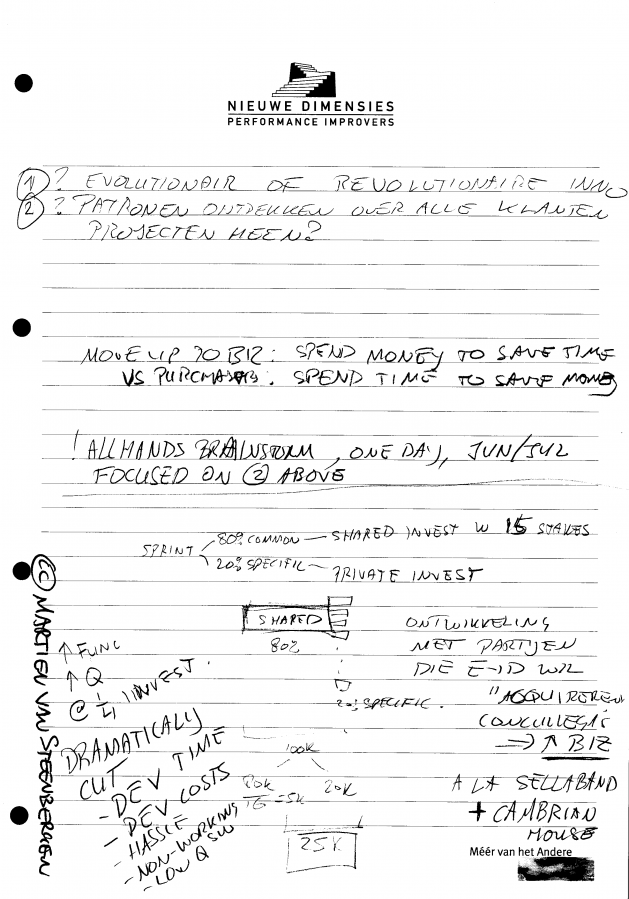 NIEUWE DIMENSIES
PERFORMANCE IMPROVERS
1 ? EVOLUTIONAIR OF REVOLUTIONAIRE INNO
2 ? PATRONEN ONTDEKKEN OVER ALLE KLANTEN
PROJECTEN HEEN?
MOVE UP TO BIZ: SPEND MONEY TO SAVE TIME
VS PURCHASERS: SPEND TIME TO SAVE MONEY
! ALLHANDS BRAINSTORM, ONE DAY, JUN/JUL
FOCUSED ON 2 ABOVE
SPRINT
80% COMMON — SHARED INVEST W 15 STAKES
20% SPECIFIC — PRIVATE INVEST
SHARED
80%
20% SPECIFIC.
ONTWIKKELING
MET PARTIJEN
DIE E-ID WIL
"ACQUIREREN
→ ↑ BIZ
A LA SELLABAND
+ CAMBRIAN
HOUSE
(cc) MARTIEN VAN STEENBERGEN
↑ FUNC
↑ Q
@ 1/4 INVEST.
DRAMATICALLY
CUT
- DEV TIME
- DEV COSTS
- HASSLE
- NON-WORKING SW
- LOW Q
100K
80K
16 = 5K
20K
25K
Méér van het Andere